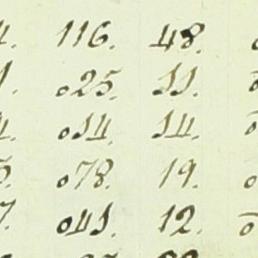 4. 116. 48.
1. 025. 11.
4. 014. 14.
5. 078. 19.
7. 041. 12.